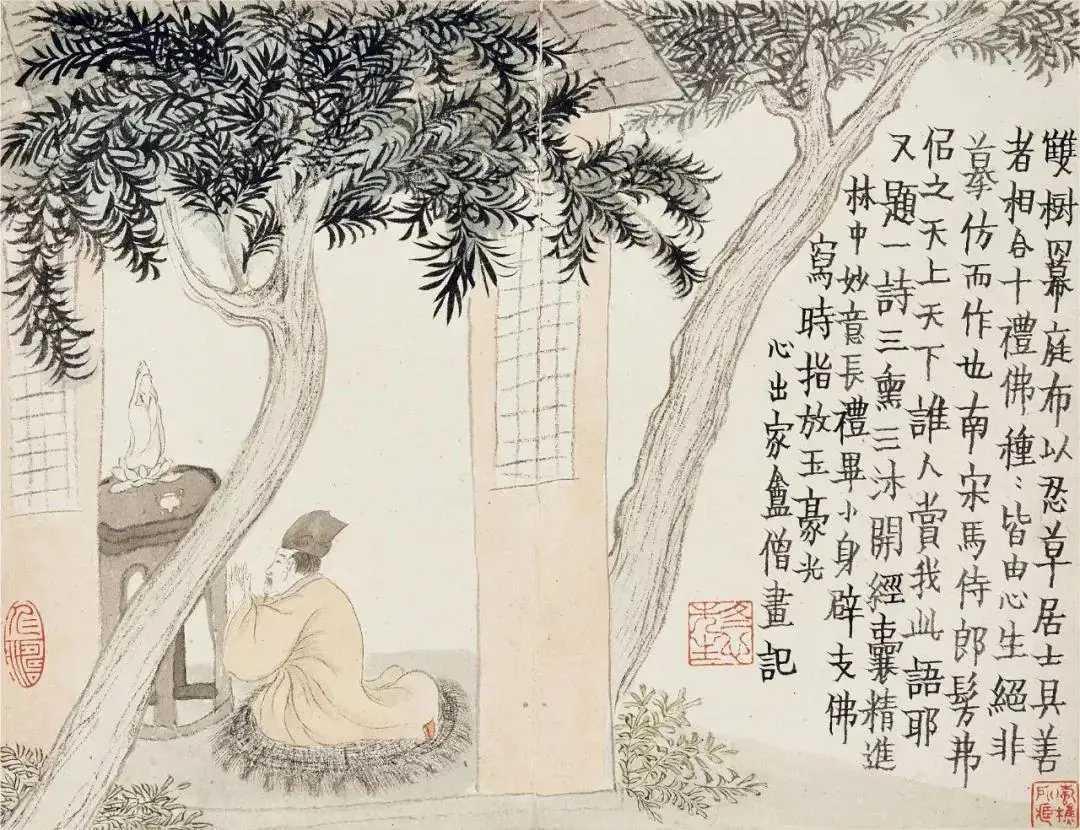 雙樹羃庭布以忍草居士具善
者相合十禮佛種〻皆由心生絕非
摹仿而作也南宋馬侍郎髣弗
佀之天上天下誰人賞我此語耶
又題一詩三熏三沐開經囊精進
林中妙意長禮畢小身辟支佛
寫時指放玉豪光
心出家盦僧畫記